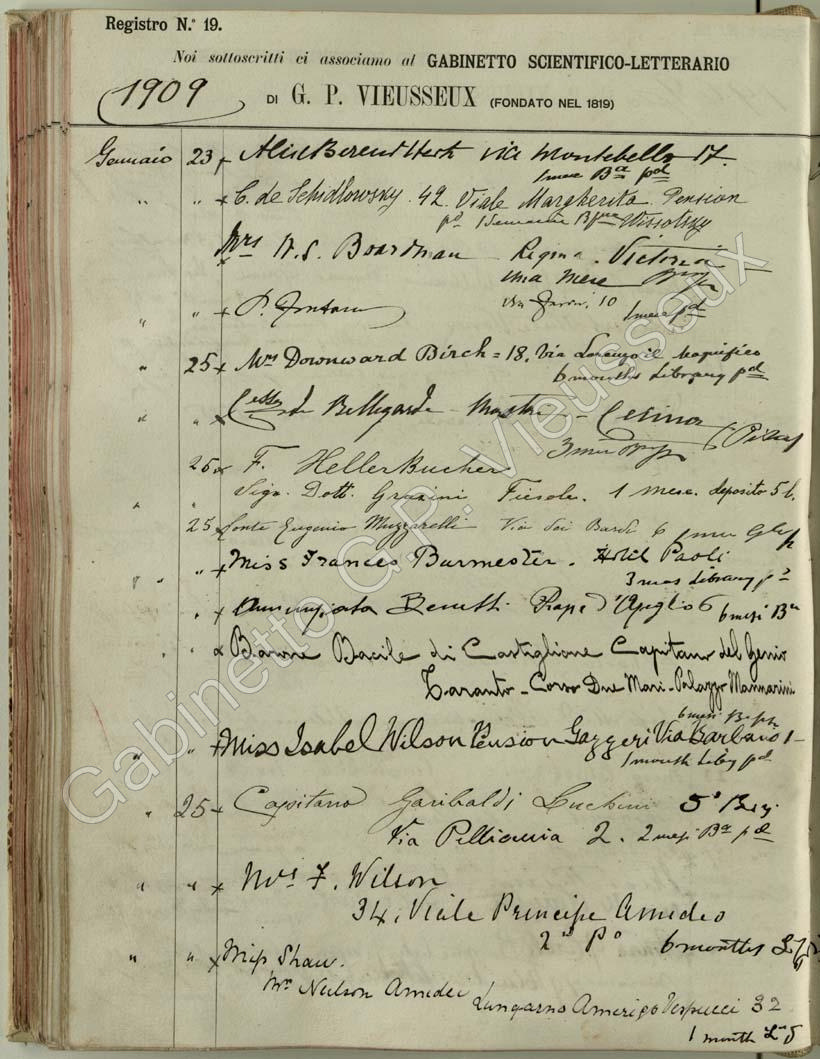 Registro N.º 19.
Noi sottoscritti ci associamo al GABINETTO SCIENTIFICO-LETTERARIO
1909
DI G. P. VIEUSSEUX (FONDATO NEL 1819)
Gennaio 23 x Alice Berend Via Montebello 17.
1 mese Bca pd
" " x C. de Schidlowsky. 42 Viale Margherita Pension
pd 1 Semestre Wissotsky
Mrs W. S. Boardman Regina. Victoria
una mese
" " x P. Fontana 10
1 mese pd
" 25 x Mrs Downward Birch = 18, Via Lorenzo il Magnifico
6 months Library pd
" " x Ctessa de Bellegarde
3 mesi
25 x F. Heller Bucher
" " Sign. Dott. Grazini Fiesole. 1 mese. deposito 5 l.
25 Conte Eugenio Muzzarelli Via dei Bardi 6
" " x Miss Frances Burmester. Hotel Paoli
3 mos Library pd
" x Annunziata d'Azeglio 6 6 mesi Bca
" x Barone Bacile di Castiglione Capitano del Genio
Taranto - Corso Due Mari - Palazzo Mannarini
6 mesi
" " x Miss Isabel Wilson Pension Gazzeri Via Barbano 1-
1 month Liby pd
" 25 x Capitano Garibaldi Luchini
Via Pelliceria 2. 2 mesi Bca pd
" " x Mrs F. Wilson
34, Viale Principe Amedeo
2º Pº 6 months
" " x Miss Shaw.
Mrs Neilson Amedei Lungarno Amerigo Vespucci 32
1 month
Gabinetto G.P. Vieusseux